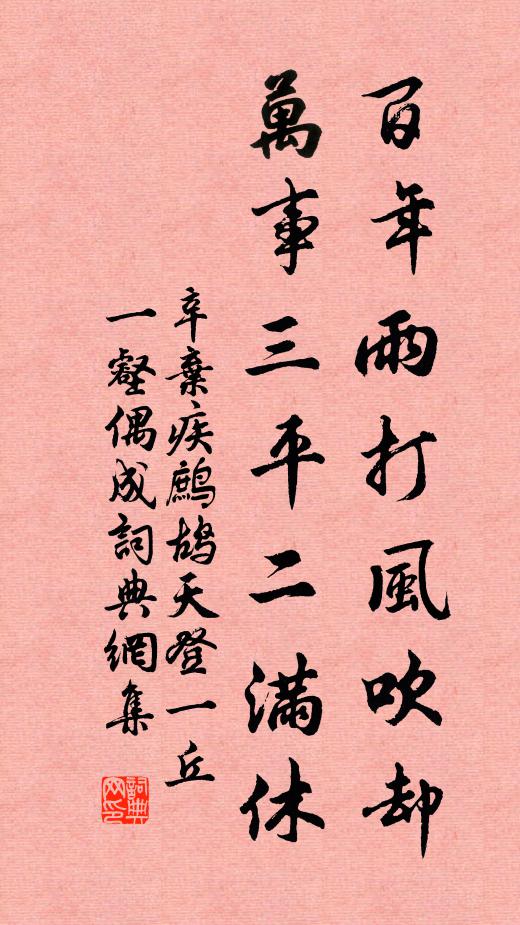 百年雨打風吹却
萬事三平二滿休
辛棄疾鷓鴣天登一丘
一壑偶成詞典網集
詞典网印